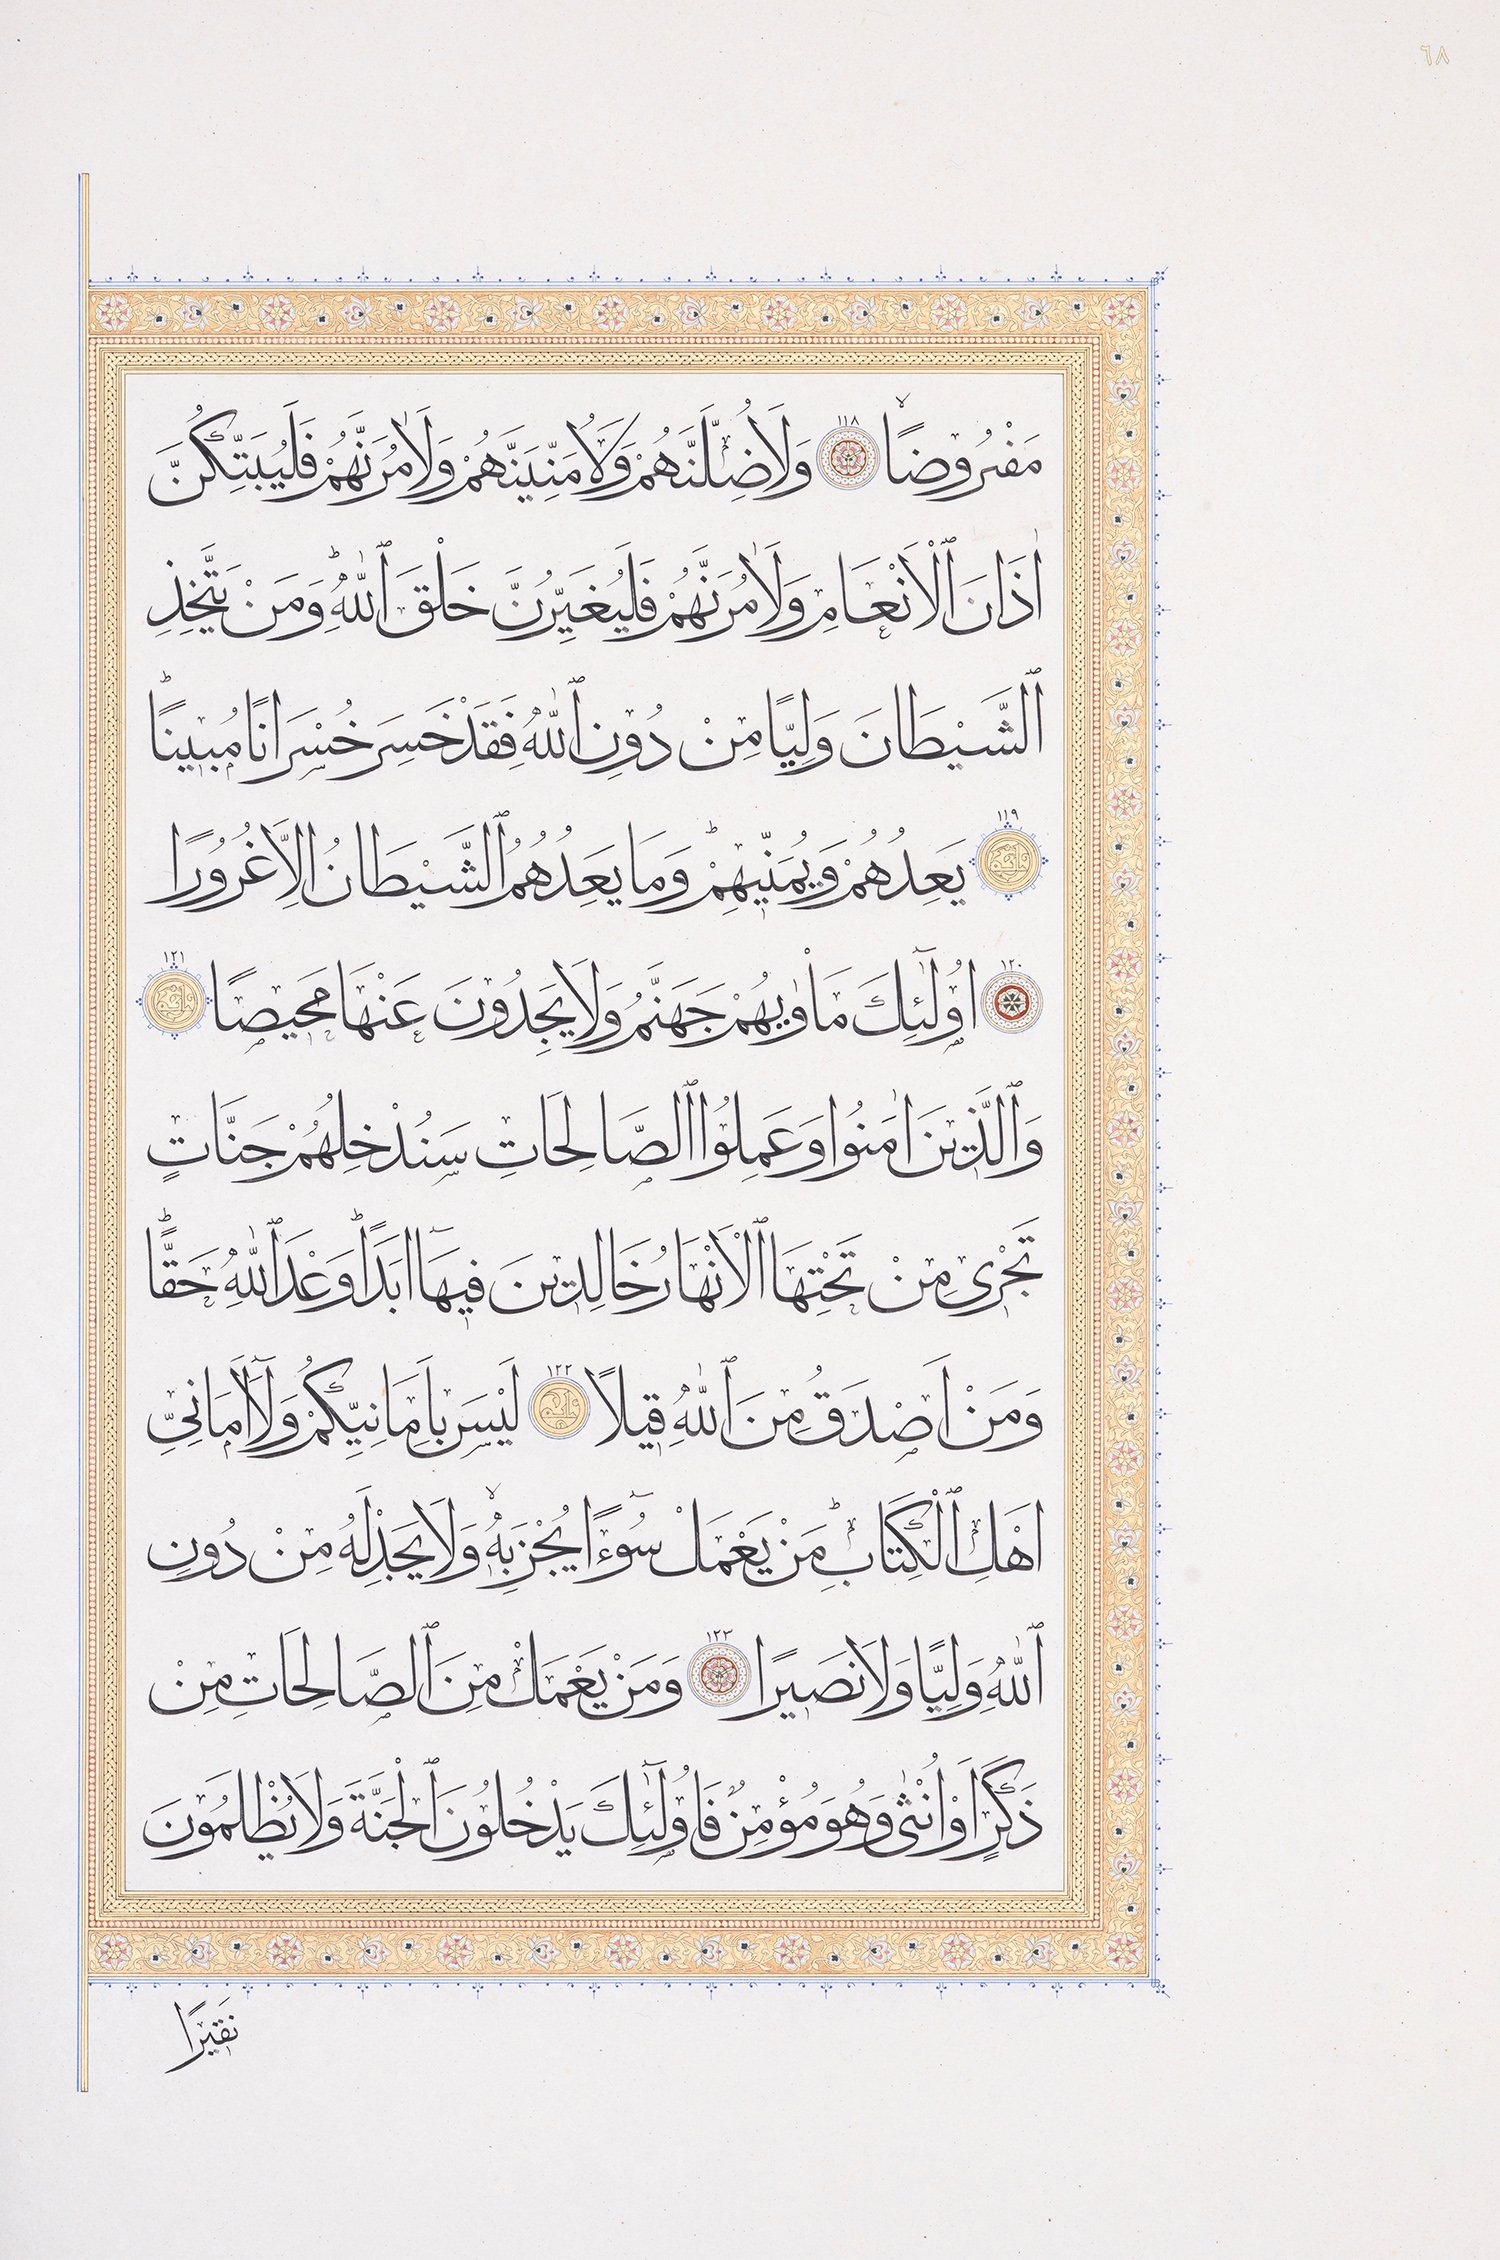 ٦٨
مَفْرُوضًاۙ ١١٨ وَلَاُضِلَّنَّهُمْ وَلَاُمَنِّيَنَّهُمْ وَلَاٰمُرَنَّهُمْ فَلَيُبَتِّكُنَّ
اٰذَانَ ٱلْاَنْعَامِ وَلَاٰمُرَنَّهُمْ فَلَيُغَيِّرُنَّ خَلْقَ ٱللّٰهِۜ وَمَنْ يَتَّخِذِ
ٱلشَّيْطَانَ وَلِيًّا مِنْ دُونِ ٱللّٰهِ فَقَدْ خَسِرَ خُسْرَانًا مُبِينًاۜ
١١٩ يَعِدُهُمْ وَيُمَنِّيهِمْۜ وَمَا يَعِدُهُمُ ٱلشَّيْطَانُ اِلَّا غُرُورًا
١٢٠ اُو۬لٰٓئِكَ مَاْوٰيهُمْ جَهَنَّمُ وَلَا يَجِدُونَ عَنْهَا مَحِيصًا ١٢١
وَٱلَّذِينَ اٰمَنُوا وَعَمِلُوا ٱلصَّالِحَاتِ سَنُدْخِلُهُمْ جَنَّاتٍ
تَجْرِى مِنْ تَحْتِهَا ٱلْاَنْهَارُ خَالِدِينَ فِيهَٓا اَبَدًاۜ وَعْدَ ٱللّٰهِ حَقًّاۜ
وَمَنْ اَصْدَقُ مِنَ ٱللّٰهِ قِيلًا ١٢٢ لَيْسَ بِاَمَانِيِّكُمْ وَلَٓا اَمَانِيِّ
اَهْلِ ٱلْكِتَابِۜ مَنْ يَعْمَلْ سُٓوءًا يُجْزَ بِهِۙ وَلَا يَجِدْ لَهُ مِنْ دُونِ
ٱللّٰهِ وَلِيًّا وَلَا نَصِيرًا ١٢٣ وَمَنْ يَعْمَلْ مِنَ ٱلصَّالِحَاتِ مِنْ
ذَكَرٍ اَوْ اُنْثٰى وَهُوَ مُؤْمِنٌ فَاُو۬لٰٓئِكَ يَدْخُلُونَ ٱلْجَنَّةَ وَلَا يُظْلَمُونَ
نَقِيرًا